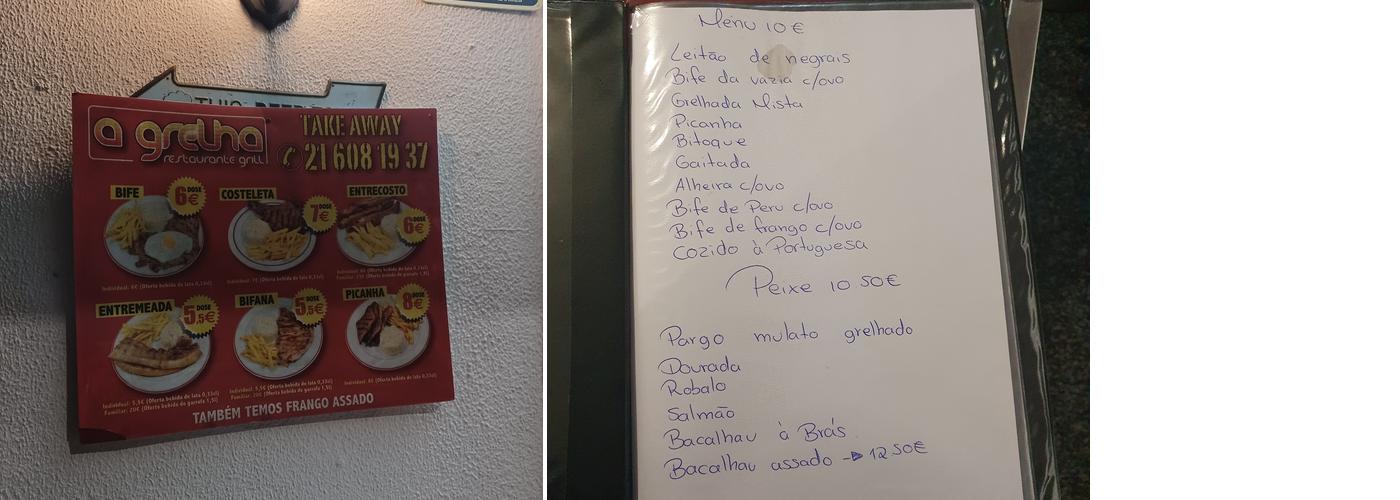 a grelha
restaurante grill
TAKE AWAY
21 608 19 37
BIFE
6€ DOSE
COSTELETA
7€ DOSE
ENTRECOSTO
6€ DOSE
Individual: 6€ (Oferta bebida de lata 0,33cl)
Individual: 7€ (Oferta bebida de lata 0,33cl)
Individual: 6€ (Oferta bebida de lata 0,33cl)
ENTREMEADA
5,5€ DOSE
BIFANA
5,5€ DOSE
PICANHA
8€ DOSE
Individual: 5,5€ (Oferta bebida de lata 0,33cl)
Familiar: 20€ (Oferta bebida de garrafa 1,5l)
Individual: 5,5€ (Oferta bebida de lata 0,33cl)
Familiar: 20€ (Oferta bebida de garrafa 1,5l)
Individual: 8€ (Oferta bebida de lata 0,33cl)
TAMBÉM TEMOS FRANGO ASSADO
Menu 10€
Leitão de negrais
Bife da vazia c/ovo
Grelhada Mista
Picanha
Bitoque
Gaitada
Alheira c/ovo
Bife de Peru c/ovo
Bife de frango c/ovo
Cozido à Portuguesa
Peixe 10 50€
Pargo mulato grelhado
Dourada
Robalo
Salmão
Bacalhau à Brás
Bacalhau assado → 12 50€